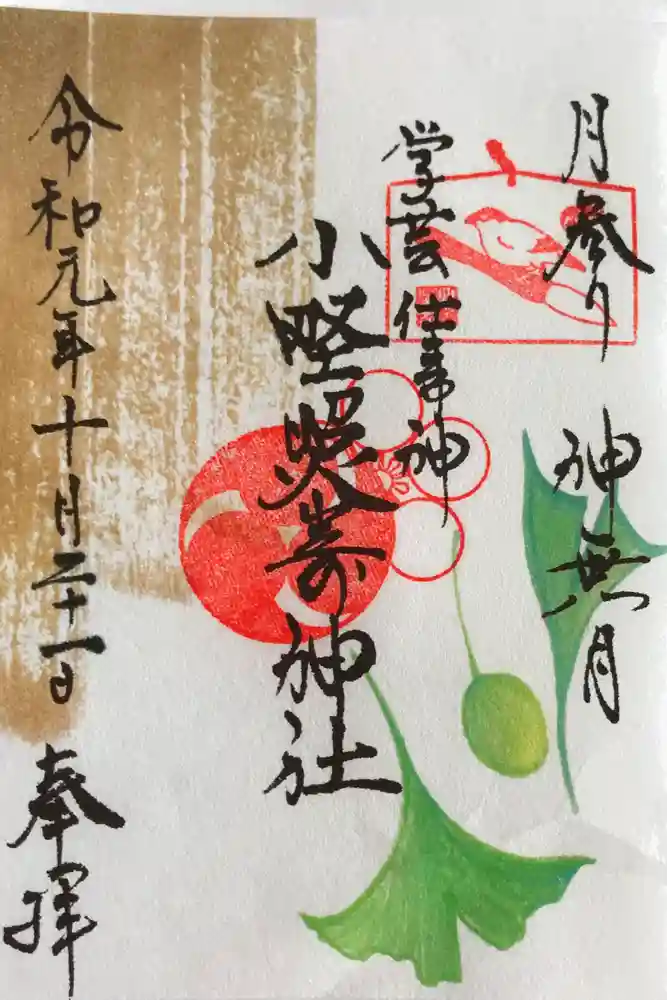 月参り 神無月
学芸仕事神
小野照崎神社
令和元年十月二十一日
奉拝